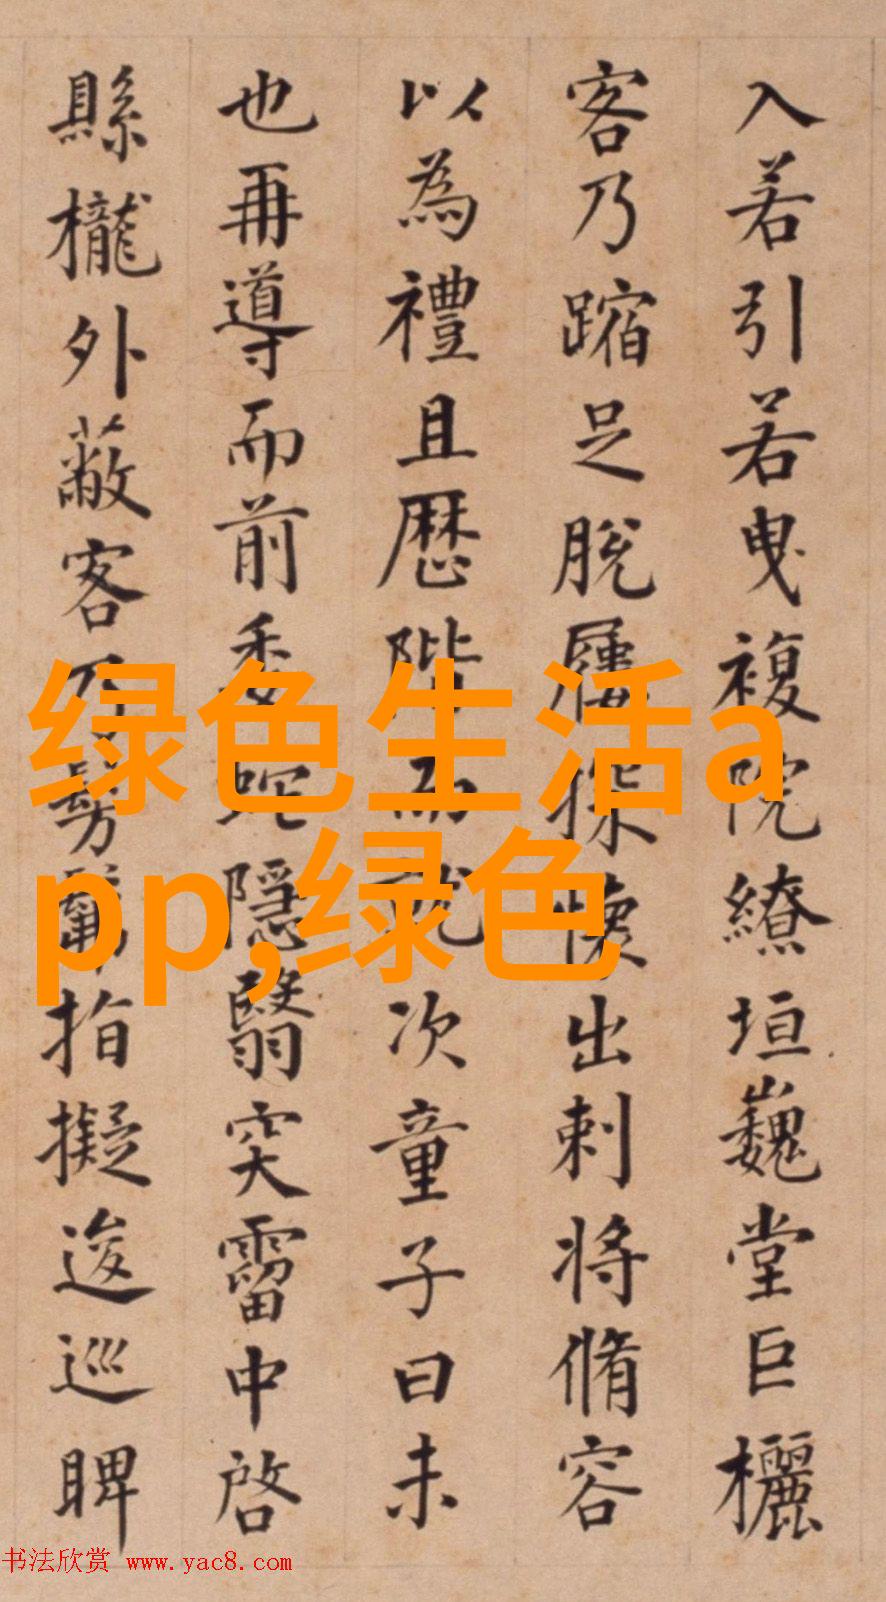 入若引若曳複院繚垣巍堂巨欐
客乃蹜足脫屨探懷出刺将脩容
以為禮且歷階而就次童子曰未
也再導而前委蛇隱翳突霤中啓
縣櫳外蔽客乃髣髴指擬逡巡睥
绿色生活a
pp,绿色
书法欣赏 www.yac8.com